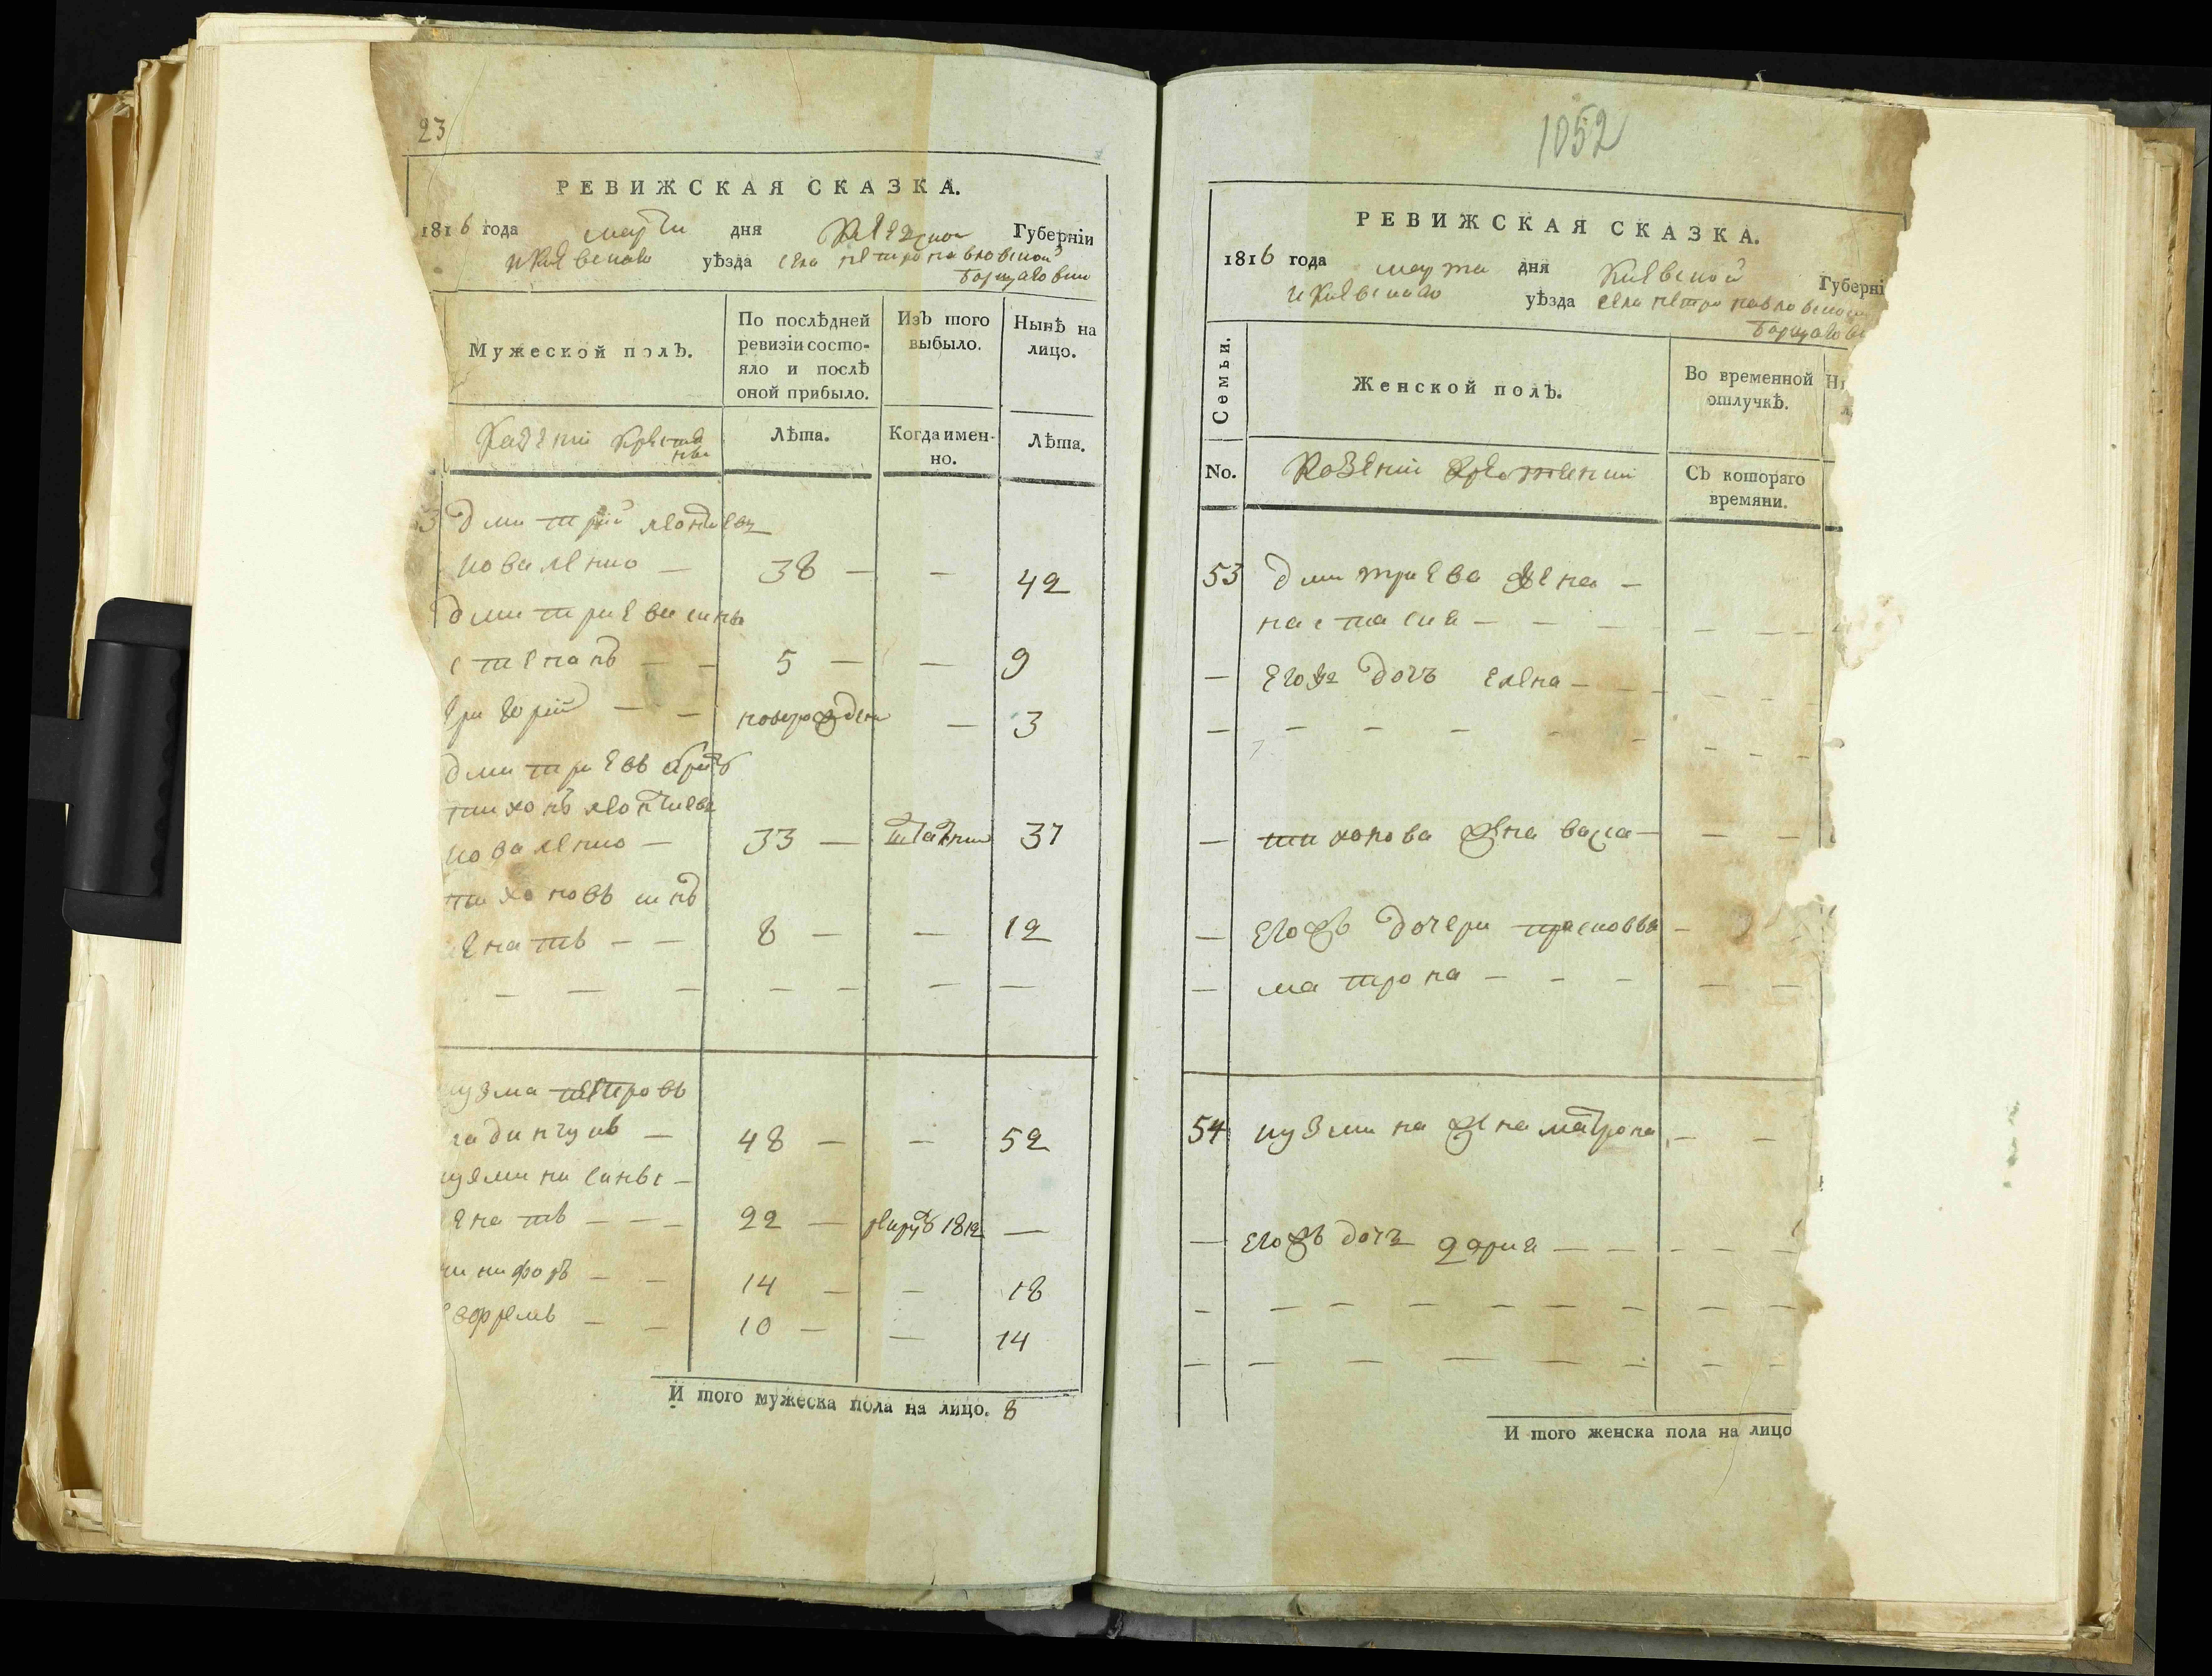 23
РЕВИЖСКАЯ СКАЗКА.
1816 года марта дня Киевской Губерніи
и Киевскаго уѣзда села петропавловской
Борщаговки
Мужеской полъ.
По послѣдней ревизіи состо-
яло и послѣ
оной прибыло.
Изъ того
выбыло.
Нынѣ на
лицо.
Казеніи крестья
Лѣта.
Когда имен-
но.
Лѣта.
3 дмитрій леонтиевъ
коваленко — 38 — — 42
дмитриева сины
степанъ — — 5 — — 9
григорій — — новорожден — 3
дмитриевъ братъ
тихонъ леонтиевъ
коваленко — 33 — 37
тихоновъ синъ
игнатъ — — 8 — — 12
— — — — — — —
кузма петровъ
48 — — 52
кузмини сины —
игнатъ — — — 22 — рекрут 1812 —
никифоръ — — 14 — — 18
ефремъ — — 10 — — 14
И того мужеска пола на лицо. 8
1052
РЕВИЖСКАЯ СКАЗКА.
1816 года марта дня Киевской Губерні
и Киевскаго уѣзда села петропавловской
Борщагов
Семьи.
Женской полъ.
Во временной
отлучкѣ.
Н
No.
Казеніи
Съ котораго
времяни.
53 дмитриева жена —
настасия — — — — — —
— его же дочь елена — — — — — —
— — — — — — — — —
— тихонова жена васса — — —
— его жъ дочери прасковья —
— матрона — — — — —
54 кузмина жена матрона — —
— его жъ дочь дария — — — — —
— — — — — — — — —
— — — — — — — —
И того женска пола на лицо